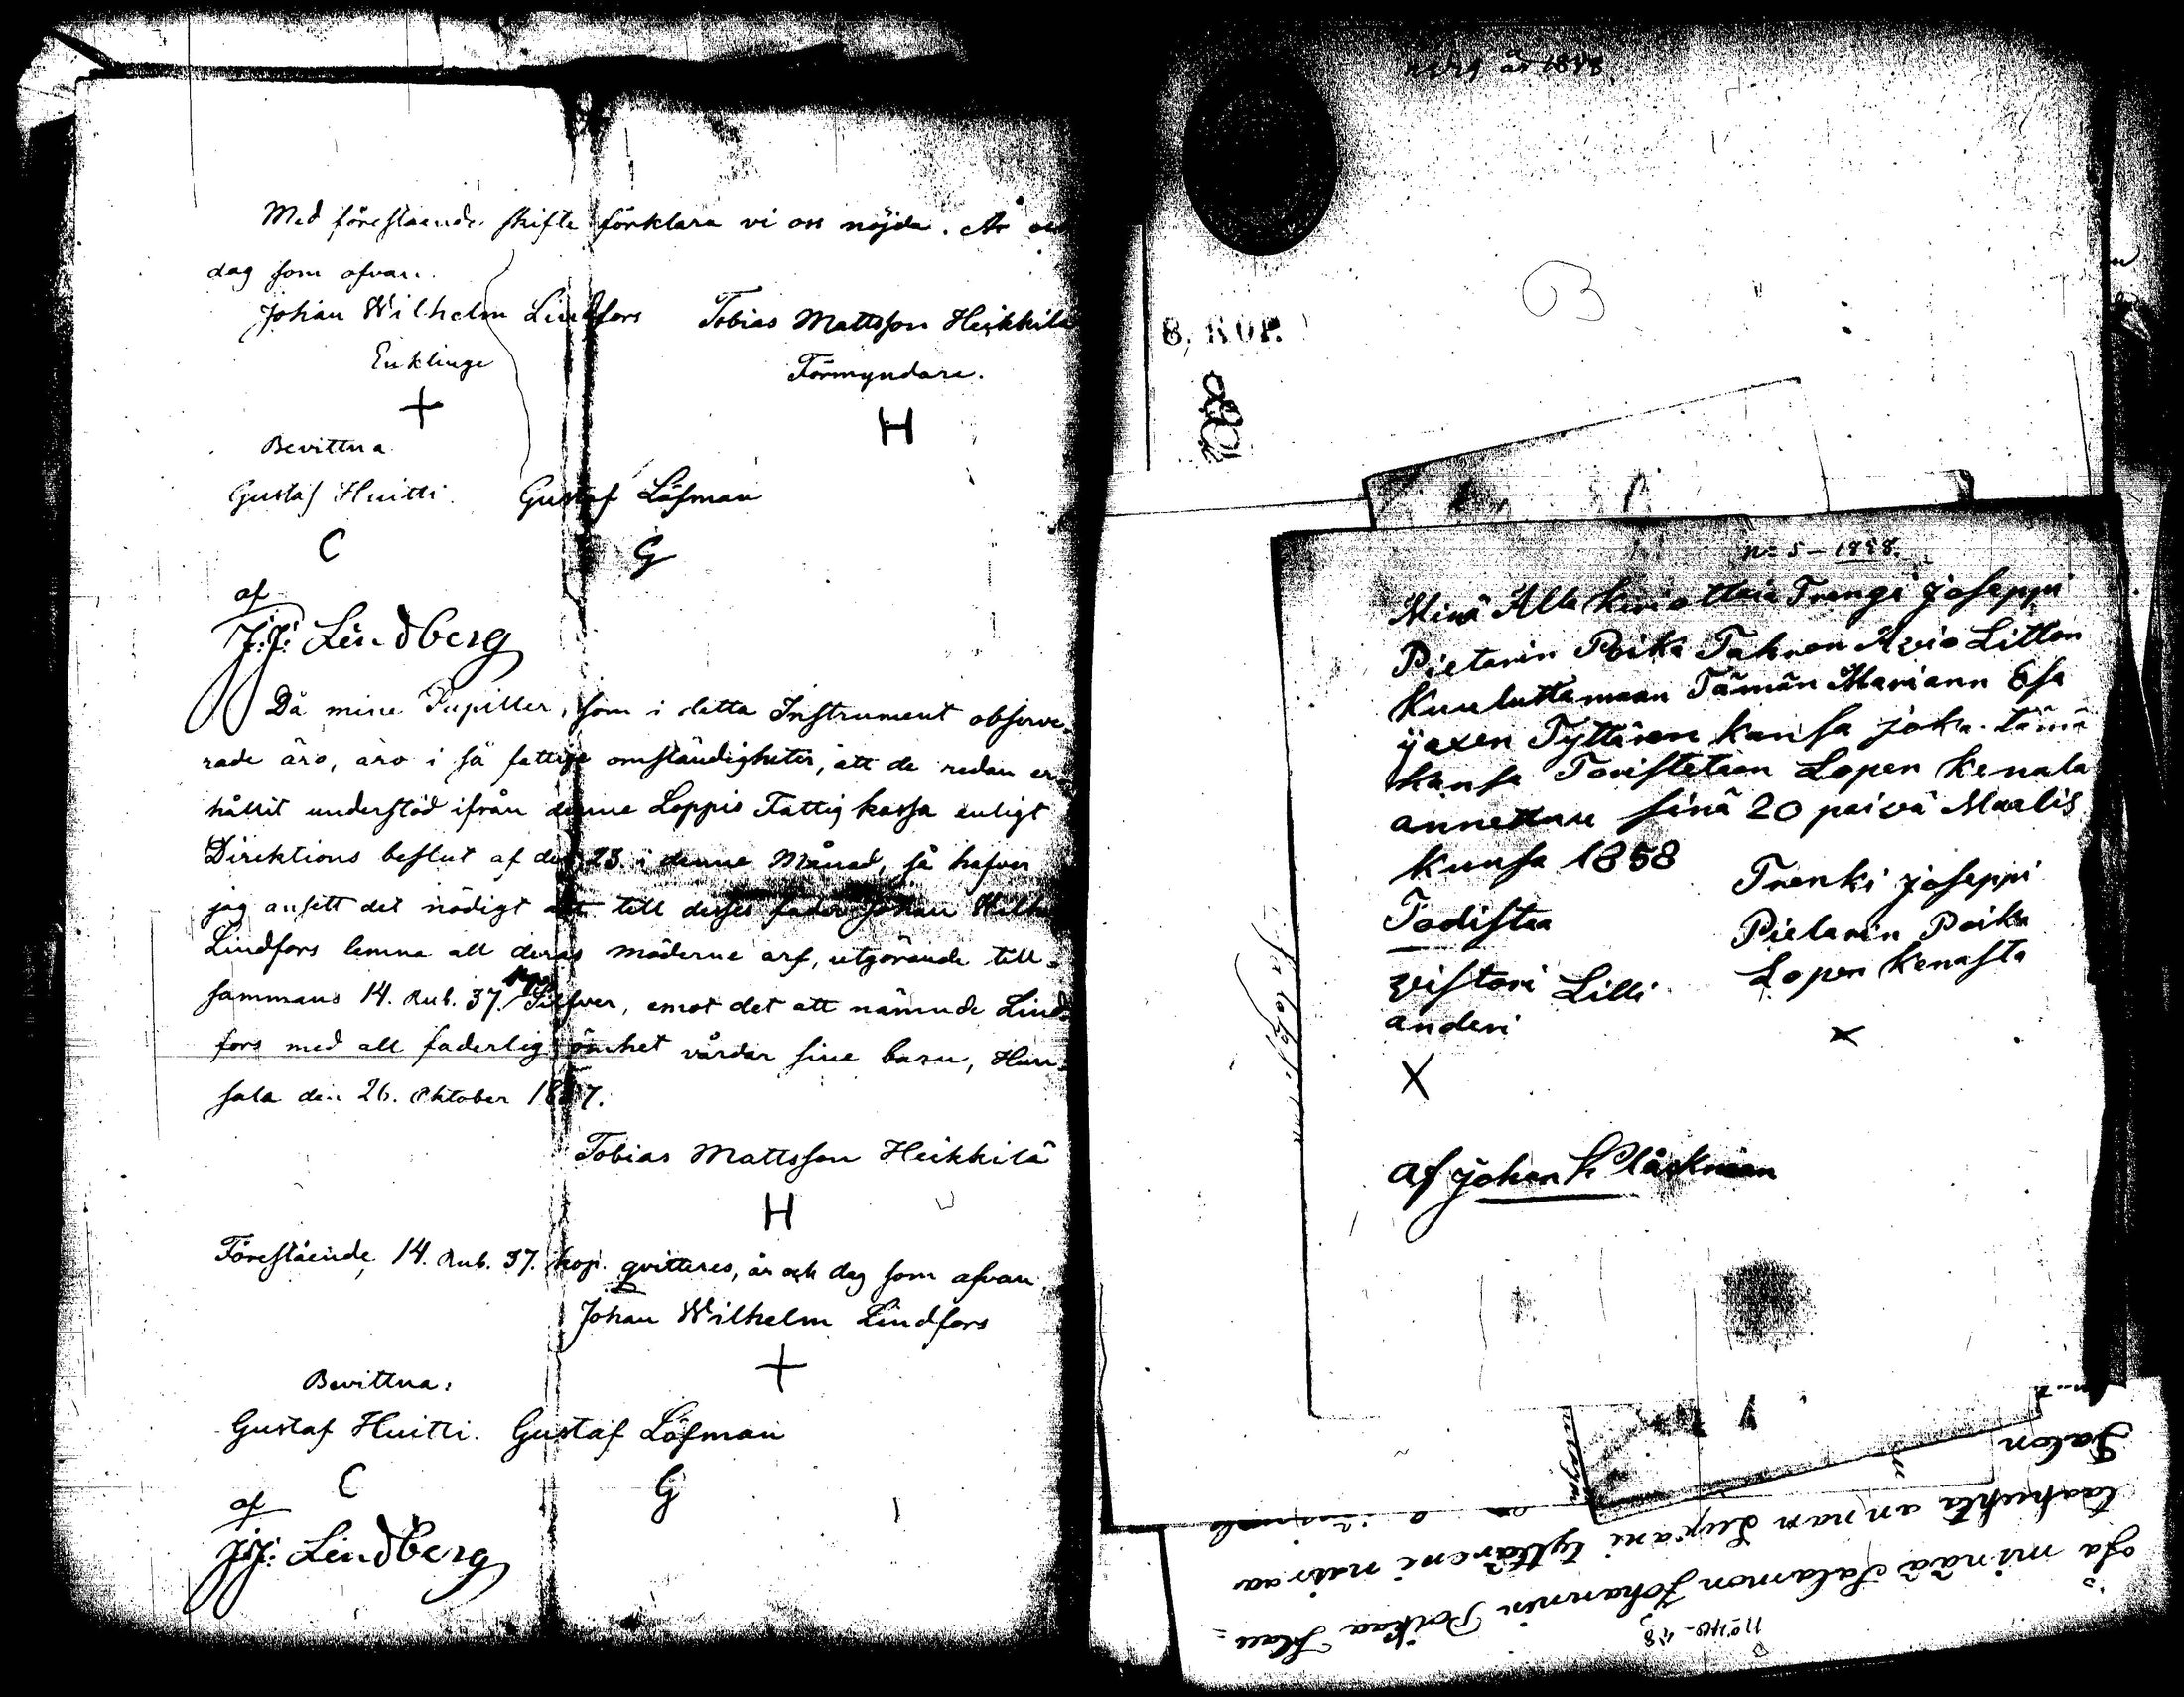 Med förestående skifte förklara vi oss nöjda. År och
dag som ofvan.
Johan Wilhelm Lindfors Tobias Mattsson Heikkilä
Enklinge Förmyndare.
+ H
Bevittna
Gustaf Huitti. Gustaf Löfman
C G
af
J.J. Lindberg
Då mine Pupiller, som i detta Instrument observe-
rade äro, äro i så fattige omständigheter, att de redan er-
hållit understöd ifrån denne Loppis Fattig kassa enligt
Direktions beslut af den 23. i denne Månad, så hafver
jag ansett det nödigt att till desses fader Johan Wilh
Lindfors lemna all deras möderne arf, utgörande till-
sammans 14. Rub. 37. Silfver, emot det att nämnde Lind-
fors med all faderlig ömhet vårdar sine barn, Hun-
sala den 26. Oktober 1857.
Tobias Mattsson Heikkilä
H
Förestående 14. Rub. 37. kop. qvitteres, år och dag som ofvan.
Johan Wilhelm Lindfors
+
Bevittna:
Gustaf Huitti. Gustaf Löfman
C G
af
J.J. Lindberg
år 1848
8. KOP.
n:o 5 - 1858.
Minä Alla kiriottaia Trengi Joseppi
Pietarin Poika Tahron Avio Litton
Kuuluttamaan Tämän Mariann Esa
ijaxen Tyttären kansa joka tämä
kansa Toristetaan Lopen kenala
annettuu sinä 20 paivä Maalis
kunsa 1858
Todistaa
Trenki Joseppi
Pietarin Poika
Lopen kenasta
x
vistori Lilli
anderi
X
af Johan K Pläckman
n:o 40 - 48
osa minää Salamon Johannin Poikaa Hau-
taahuhta annan Lupani tyttäreni naivaa
Salon